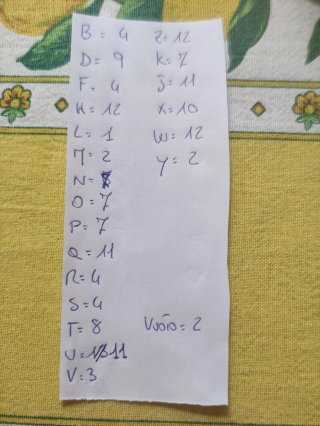 B = 4 Z = 12
D = 9 K = 7
F = 4 J = 11
H = 12 X = 10
L = 1 W = 12
M = 2 Y = 2
N =
O = 7
P = 7
Q = 11
R = 4
S = 4
T = 8 VUOTO = 2
U = 11
V = 3